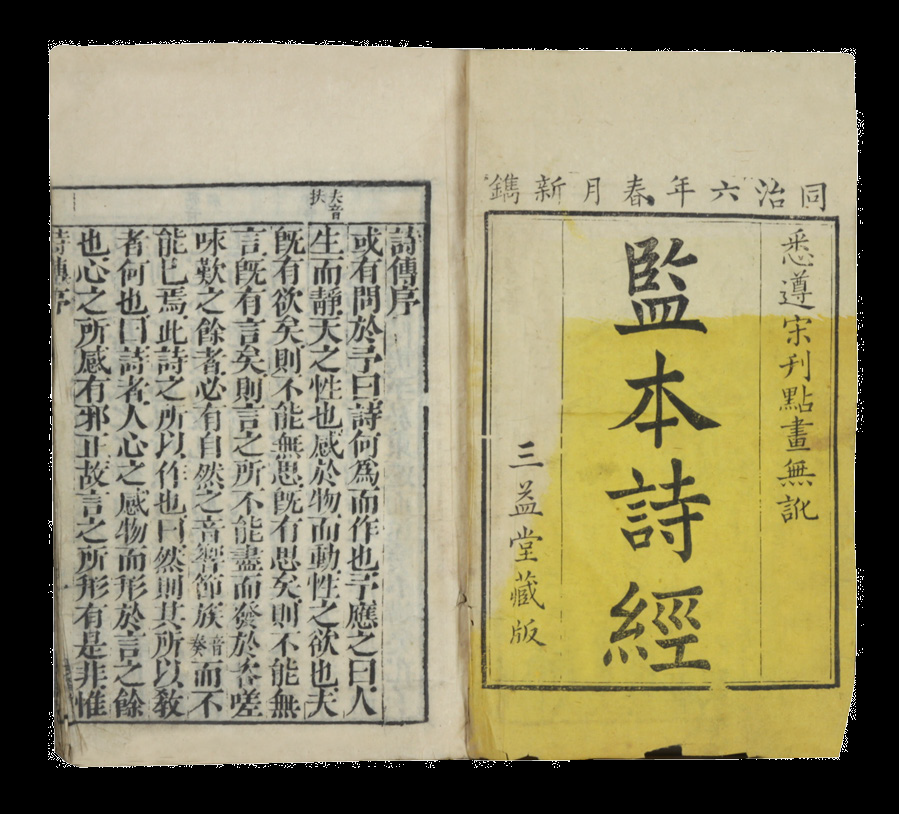 同治六年春月新鐫
悉遵宋刊點畫無訛
監本詩經
三益堂藏版
夫音
扶
詩傳序
或有問於予曰詩何爲而作也予應之曰人
生而靜天之性也感於物而動性之欲也夫
旣有欲矣則不能無思旣有思矣則不能無
言旣有言矣則言之所不能盡而發於咨嗟
咏歎之餘者必有自然之音響節族音奏而不
能已焉此詩之所以作也曰然則其所以敎
者何也曰詩者人心之感物而形於言之餘
也心之所感有邪正故言之所形有是非惟
詩傳序
一